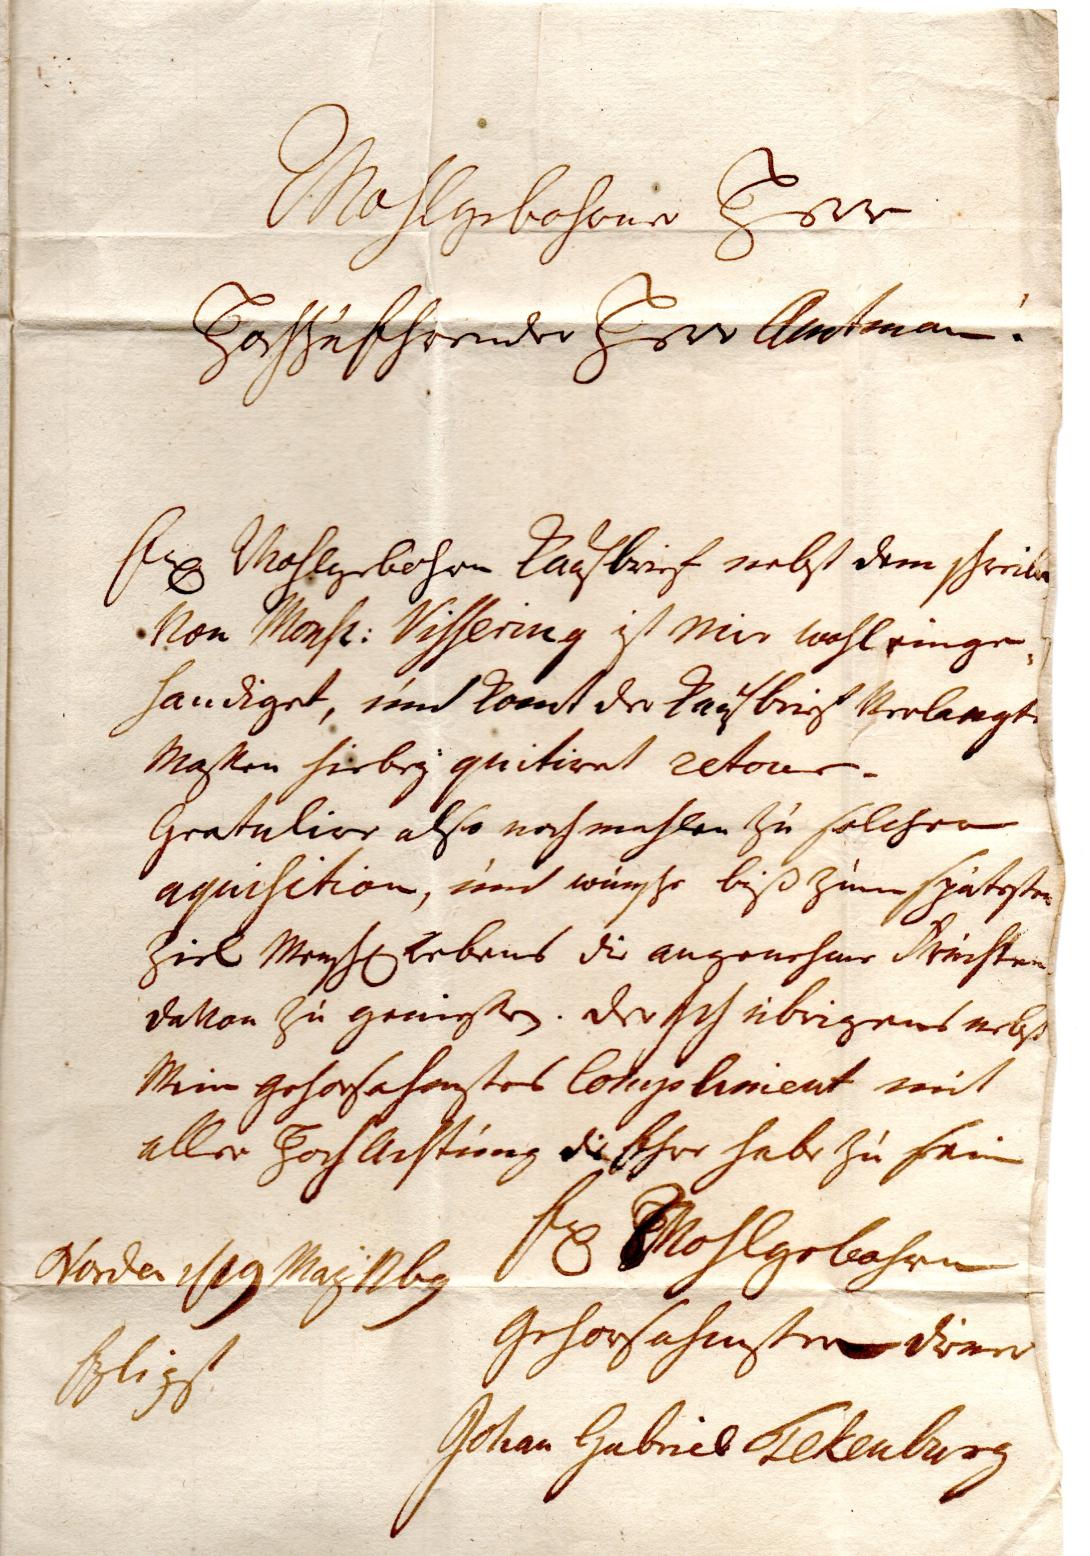 Wohlgebohrner Herr
Hochzuehrender Herr Amtman!
Ew Wohlgebohrn Kaufbrief nebst dem schreiben
Von Mons: Vissering ist mir wohl einge-
handiget, und komt der Kaufbrief Verlangter
Massen hierbey quitiret retour.
Gratulire also nochmahlen zu solcher
aquisition, und wünsche biß zum spätesten
Ziel Menschl Lebens die angenehme Früchten
davon zu geniessen. Der ich übrigens nebst
Mein gehorsahmstes Compliment mit
aller Hoch Achtung die Ehre habe zu sein
Ew Wohlgebohrn
Norden 19 May
gehorsahmster diener
Eyligst
Johan Gabriel Tekenburg